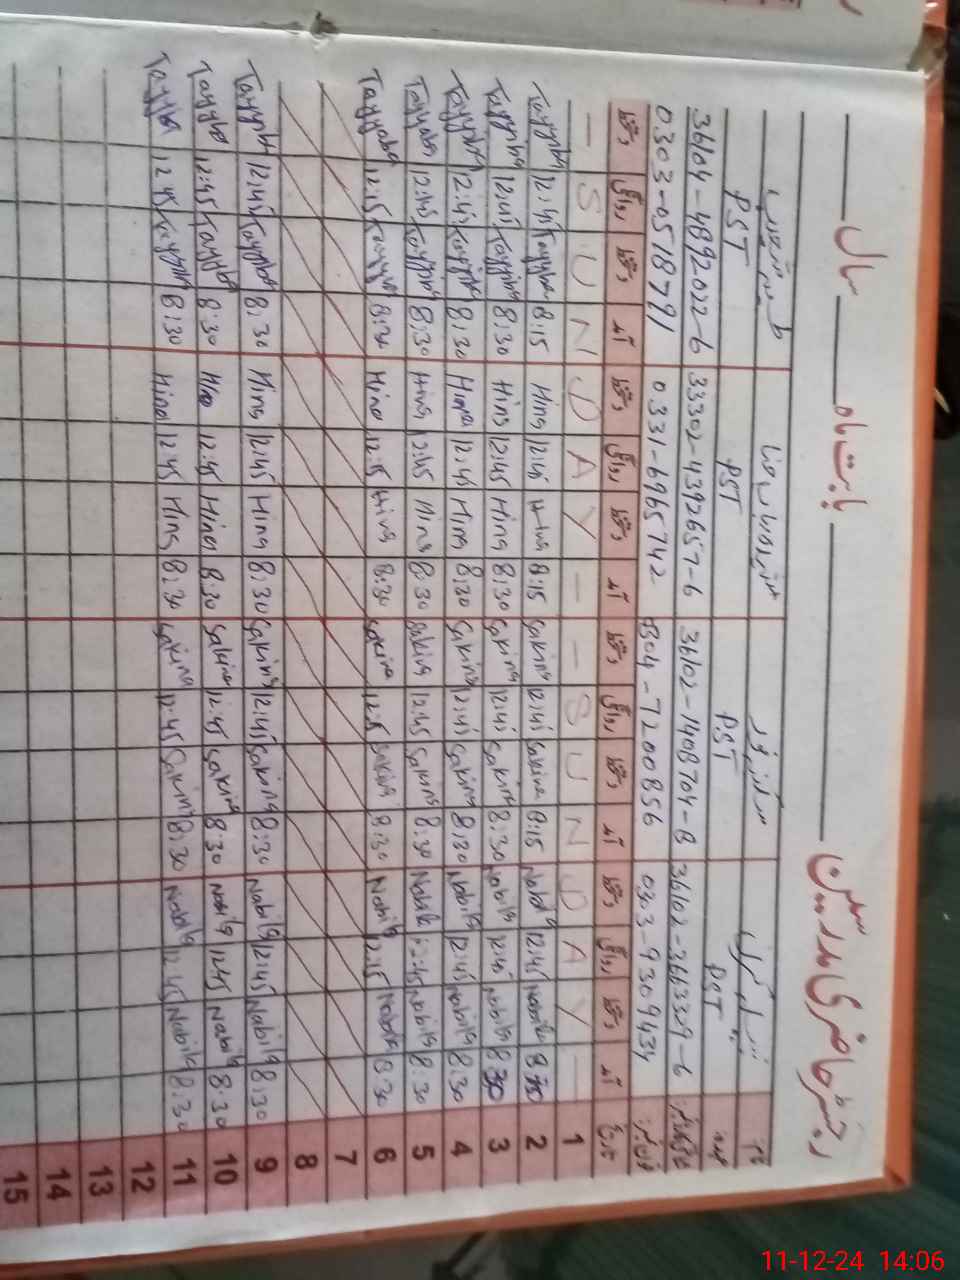 رجسٹر حاضری مدرسین بابت ماہ سال
نام
عہدہ PST PST PST PST
36102-3633329-6 36102-1408704-8 33302-4392657-6 36104-4892022-6
فون نمبر 0303-9309434 0304-7200856 0331-6965742 0303-0518791
تاریخ آمد دستخط روانگی دستخط آمد دستخط روانگی دستخط آمد دستخط روانگی دستخط آمد دستخط روانگی دستخط
1 — S U N D A Y — — S U N D A Y —
2 8:30 Nabila 12:45 Nabila 8:15 Sakina 12:45 Sakina 8:15 Hina 12:45 Hina 8:15 Tayyaba 12:45 Tayyaba
3 8:30 Nabila 12:45 Nabila 8:30 Sakina 12:45 Sakina 8:30 Hina 12:45 Hina 8:30 Tayyaba 12:45 Tayyaba
4 8:30 Nabila 12:45 Nabila 8:30 Sakina 12:45 Sakina 8:30 Hina 12:45 Hina 8:30 Tayyaba 12:45 Tayyaba
5 8:30 Nabila 12:45 Nabila 8:30 Sakina 12:45 Sakina 8:30 Hina 12:45 Hina 8:30 Tayyaba 12:45 Tayyaba
6 8:30 Nabila 12:15 Nabila 8:30 Sakina 12:15 Sakina 8:30 Hina 12:15 Hina 8:30 Tayyaba 12:15 Tayyaba
7
8
9 8:30 Nabila 12:45 Nabila 8:30 Sakina 12:45 Sakina 8:30 Hina 12:45 Hina 8:30 Tayyaba 12:45 Tayyaba
10 8:30 Nabila 12:45 Nabila 8:30 Sakina 12:45 Sakina 8:30 Hina 12:45 Hina 8:30 Tayyaba 12:45 Tayyaba
11 8:30 Nabila 12:45 Nabila 8:30 Sakina 12:45 Sakina 8:30 Hina 12:45 Hina 8:30 Tayyaba 12:45 Tayyaba
12
13
14
15
11-12-24 14:06